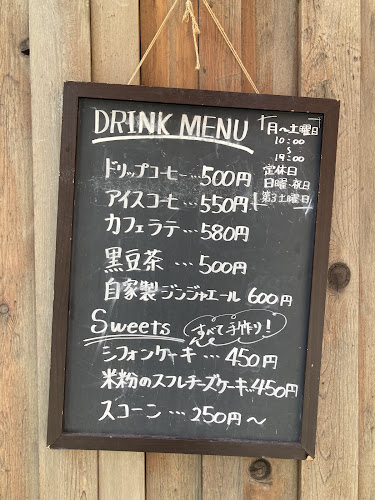 DRINK MENU
月〜土曜日
10:00
〜
19:00
定休日
日曜・祝日
第3土曜日
ドリップコーヒー…500円
アイスコーヒー…550円
カフェラテ…580円
黒豆茶…500円
自家製ジンジャエール 600円
Sweets すべて手作り!
シフォンケーキ…450円
米粉のスフレチーズケーキ…450円
スコーン…250円〜